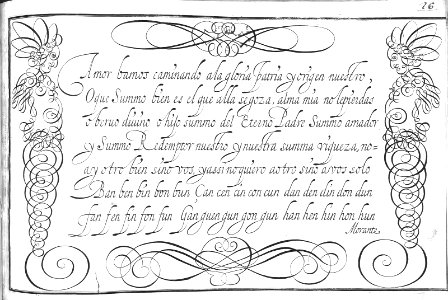 26
Amor bamos caminando ala gloria patria y origen nuestro,
O que Summo bien es el que alla se goza, alma mia no lepierdas
o beruo diuino o hijo summo del Eterno Padre Summo amador
y Summo Redemptor nuestro y nuestra summa riqueza, no=
ay otro bien sino vos, yassi no quiero aotro sino avos solo
Ban ben bin bon bun Can cen cin con cun dan den din don dun
fan fen fin fon fun Gan guen guin gon gun han hen hin hon hun
Morante